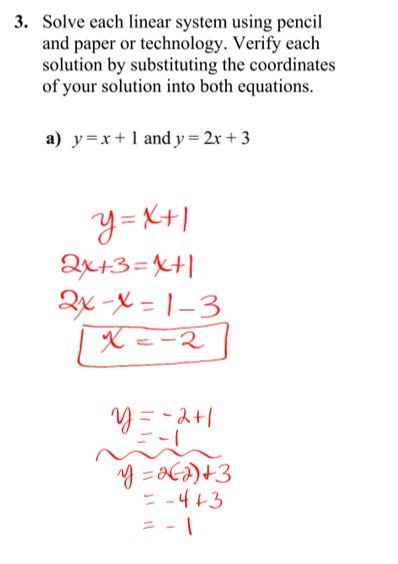 3. Solve each linear system using pencil
and paper or technology. Verify each
solution by substituting the coordinates
of your solution into both equations.
a) y = x + 1 and y = 2x + 3
y = x+1
2x+3 = x+1
2x - x = 1 - 3
x = -2
y = -2+1
= -1
y = 2(-2)+3
= -4+3
= -1